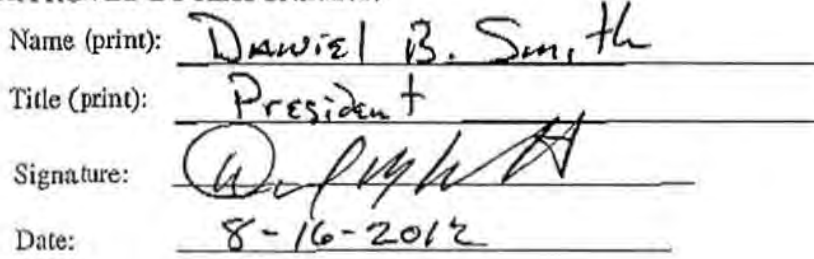 Name (print): Daniel B. Smith
Title (print): President
Signature:
Date: 8-16-2012